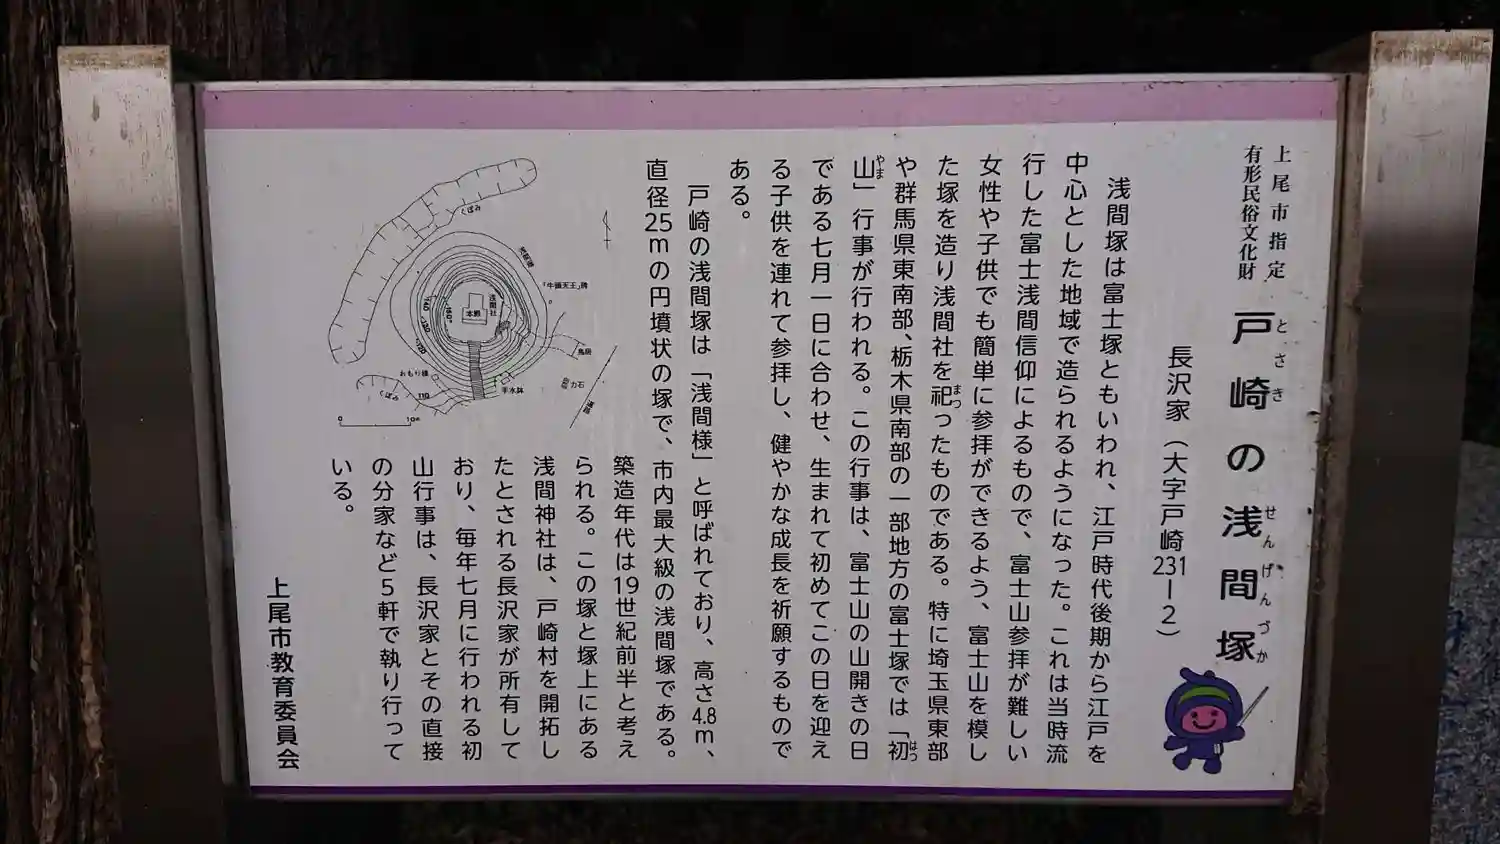 上尾市指定
有形民俗文化財
戸崎の浅間塚
とさき
せんげんづか
長沢家（大字戸崎231－2）
浅間塚は富士塚ともいわれ、江戸時代後期から江戸を
中心とした地域で造られるようになった。これは当時流
行した富士浅間信仰によるもので、富士山参拝が難しい
女性や子供でも簡単に参拝ができるよう、富士山を模し
た塚を造り浅間社を祀ったものである。特に埼玉県東部
まつ
や群馬県東南部、栃木県南部の一部地方の富士塚では「初
はつ
山」行事が行われる。この行事は、富士山の山開きの日
やま
である七月一日に合わせ、生まれて初めてこの日を迎え
る子供を連れて参拝し、健やかな成長を祈願するもので
ある。
戸崎の浅間塚は「浅間様」と呼ばれており、高さ4.8m、
直径25mの円墳状の塚で、市内最大級の浅間塚である。
築造年代は19世紀前半と考え
られる。この塚と塚上にある
浅間神社は、戸崎村を開拓し
たとされる長沢家が所有して
おり、毎年七月に行われる初
山行事は、長沢家とその直接
の分家など5軒で執り行って
いる。
上尾市教育委員会
くぼみ
「牛頭天王」碑
浅間社
本殿
鳥居
力石
手水鉢
おもり様
くぼみ
110
0
10m